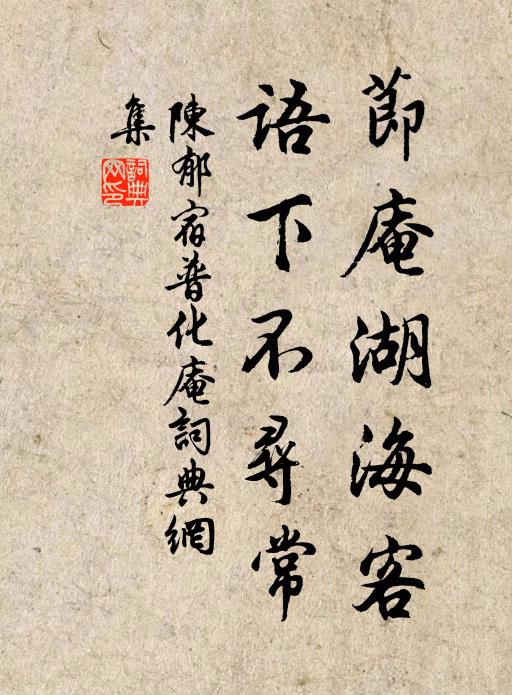 節庵湖海客
語下不尋常
陳郁宿普化庵詞典網
集
詞典
网印